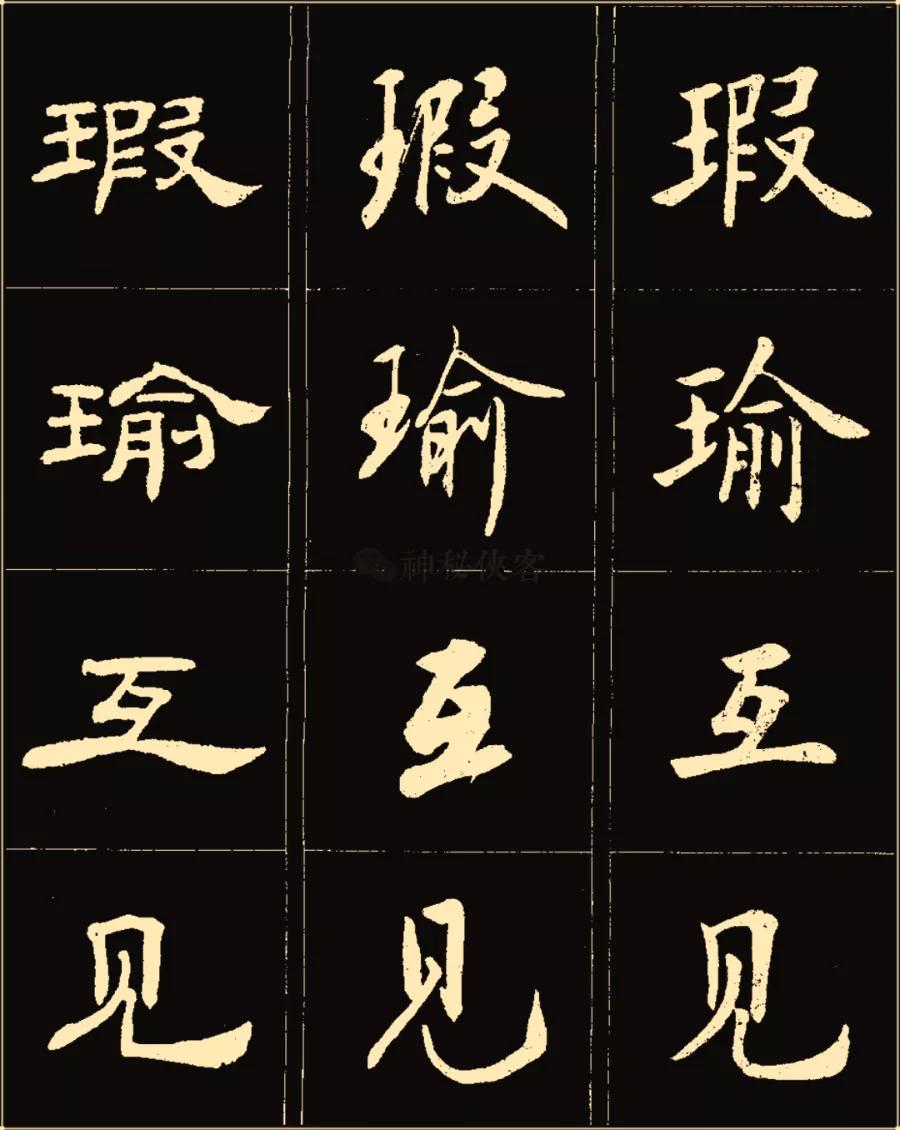 瑕瑜互见
瑕瑜互见
瑕瑜互见
神秘侠客